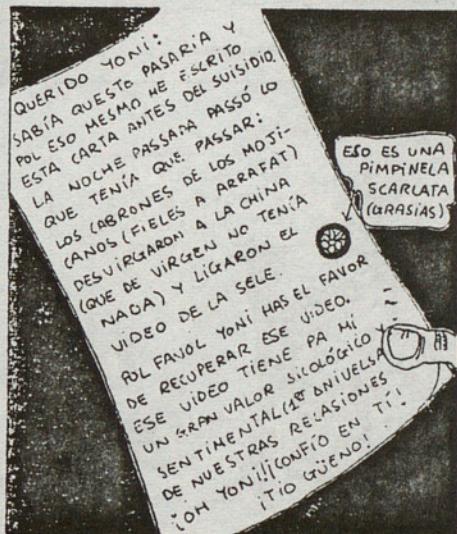 QUERIDO YONI:
SABÍA QUESTO PASARIA Y
POL ESO MESMO HE ESCRITO
ESTA CARTA ANTES DEL SUISIDIO.
LA NOCHE PASSADA PASSÓ LO
QUE TENÍA QUE PASSAR:
LOS CABRONES DE LOS MOJI-
CANOS (FIELES A ARRAFAT)
DESVIRGARON A LA CHINA
(QUE DE VIRGEN NO TENÍA
NADA) Y LIGARON EL
VIDEO DE LA SELE.
POL FAVOL YONI HAS EL FAVOR
DE RECUPERAR ESE VIDEO.
ESE VIDEO TIENE PA MÍ
UN GRAN VALOR SICOLÓGICO Y
SENTIMENTAL (1er ANIVELSA-
DE NUESTRAS RELASIONES
¡OH YONI! ¡CONFÍO EN TÍ!
¡TIO GÜENO!
ESO ES UNA
PIMPINELA
SCARLATA
(GRASIAS)